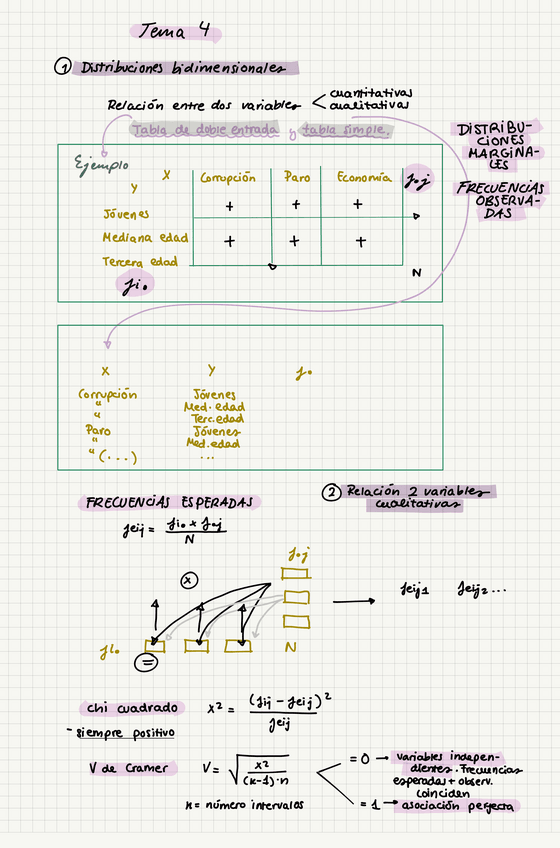 Tema 4
① Distribuciones bidimensionales
Relación entre dos variables < cuantitativas
cualitativas
Tabla de doble entrada y tabla simple.
DISTRIBU-
CIONES
MARGINA-
LES
FRECUENCIAS
OBSERVA-
DAS
Ejemplo
X Corrupción Paro Economía f.j
Y
Jóvenes + + +
Mediana edad + + +
Tercera edad
fi. N
X Y f.
Corrupción Jóvenes
" Med. edad
" Terc.edad
Paro Jóvenes
" Med.edad
" (...) ...
② Relación 2 variables
cualitativas
FRECUENCIAS ESPERADAS
feij = fi. x f.j / N
f.j
x
feij1 feij2 ...
fi. N
=
chi cuadrado x² = (fij - feij)² / feij
- siempre positivo
V de Cramer V = √ x² / (k-1)·n
= 0 → variables indepen-
dientes. Frecuencias
esperadas + observ.
coinciden
k= número intervalos
= 1 → asociación perfecta